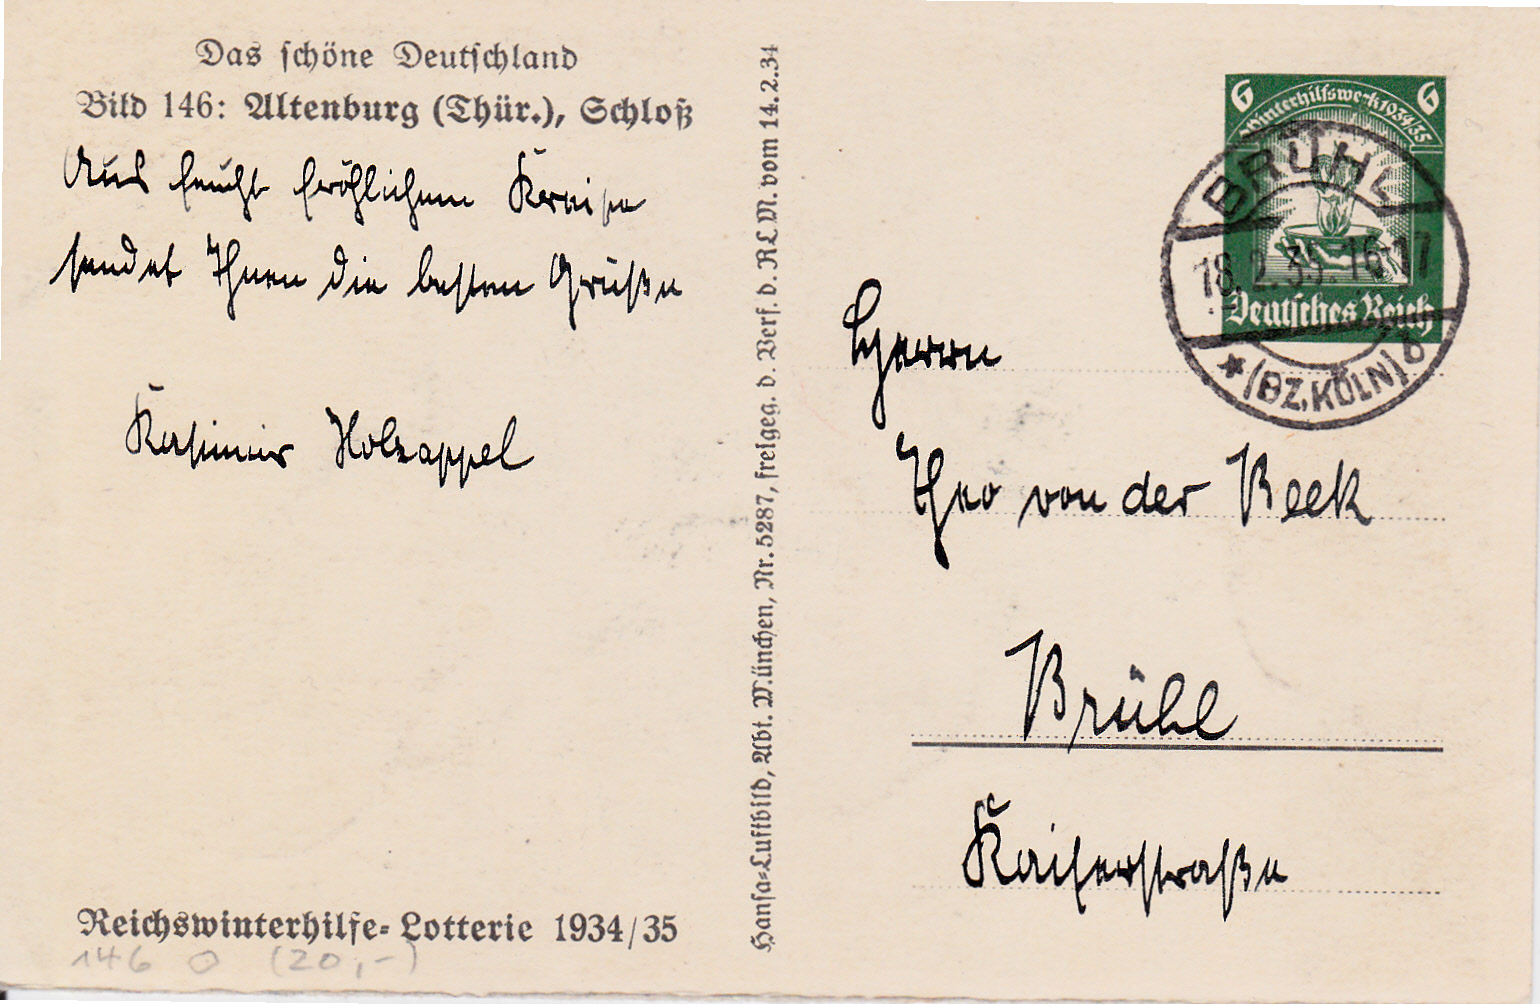 Das schöne Deutschland
Bild 146: Altenburg (Thür.), Schloß
Aus feucht fröhlichem Kreise
sendet Ihnen die besten Grüße
Kasimir Holzappel
Reichswinterhilfe-Lotterie 1934/35
146 O (20,-)
Hansa-Luftbild, Abt. München, Nr. 5287, freigeg. d. Verf. d. RLM. vom 14.2.34
6 6
Winterhilfswerk 1934/35
Deutsches Reich
BRÜHL
18.2.35.16-17
* (BZ. KÖLN) b
Herrn
Theo von der Beek
Brühl
Kaiserstraße